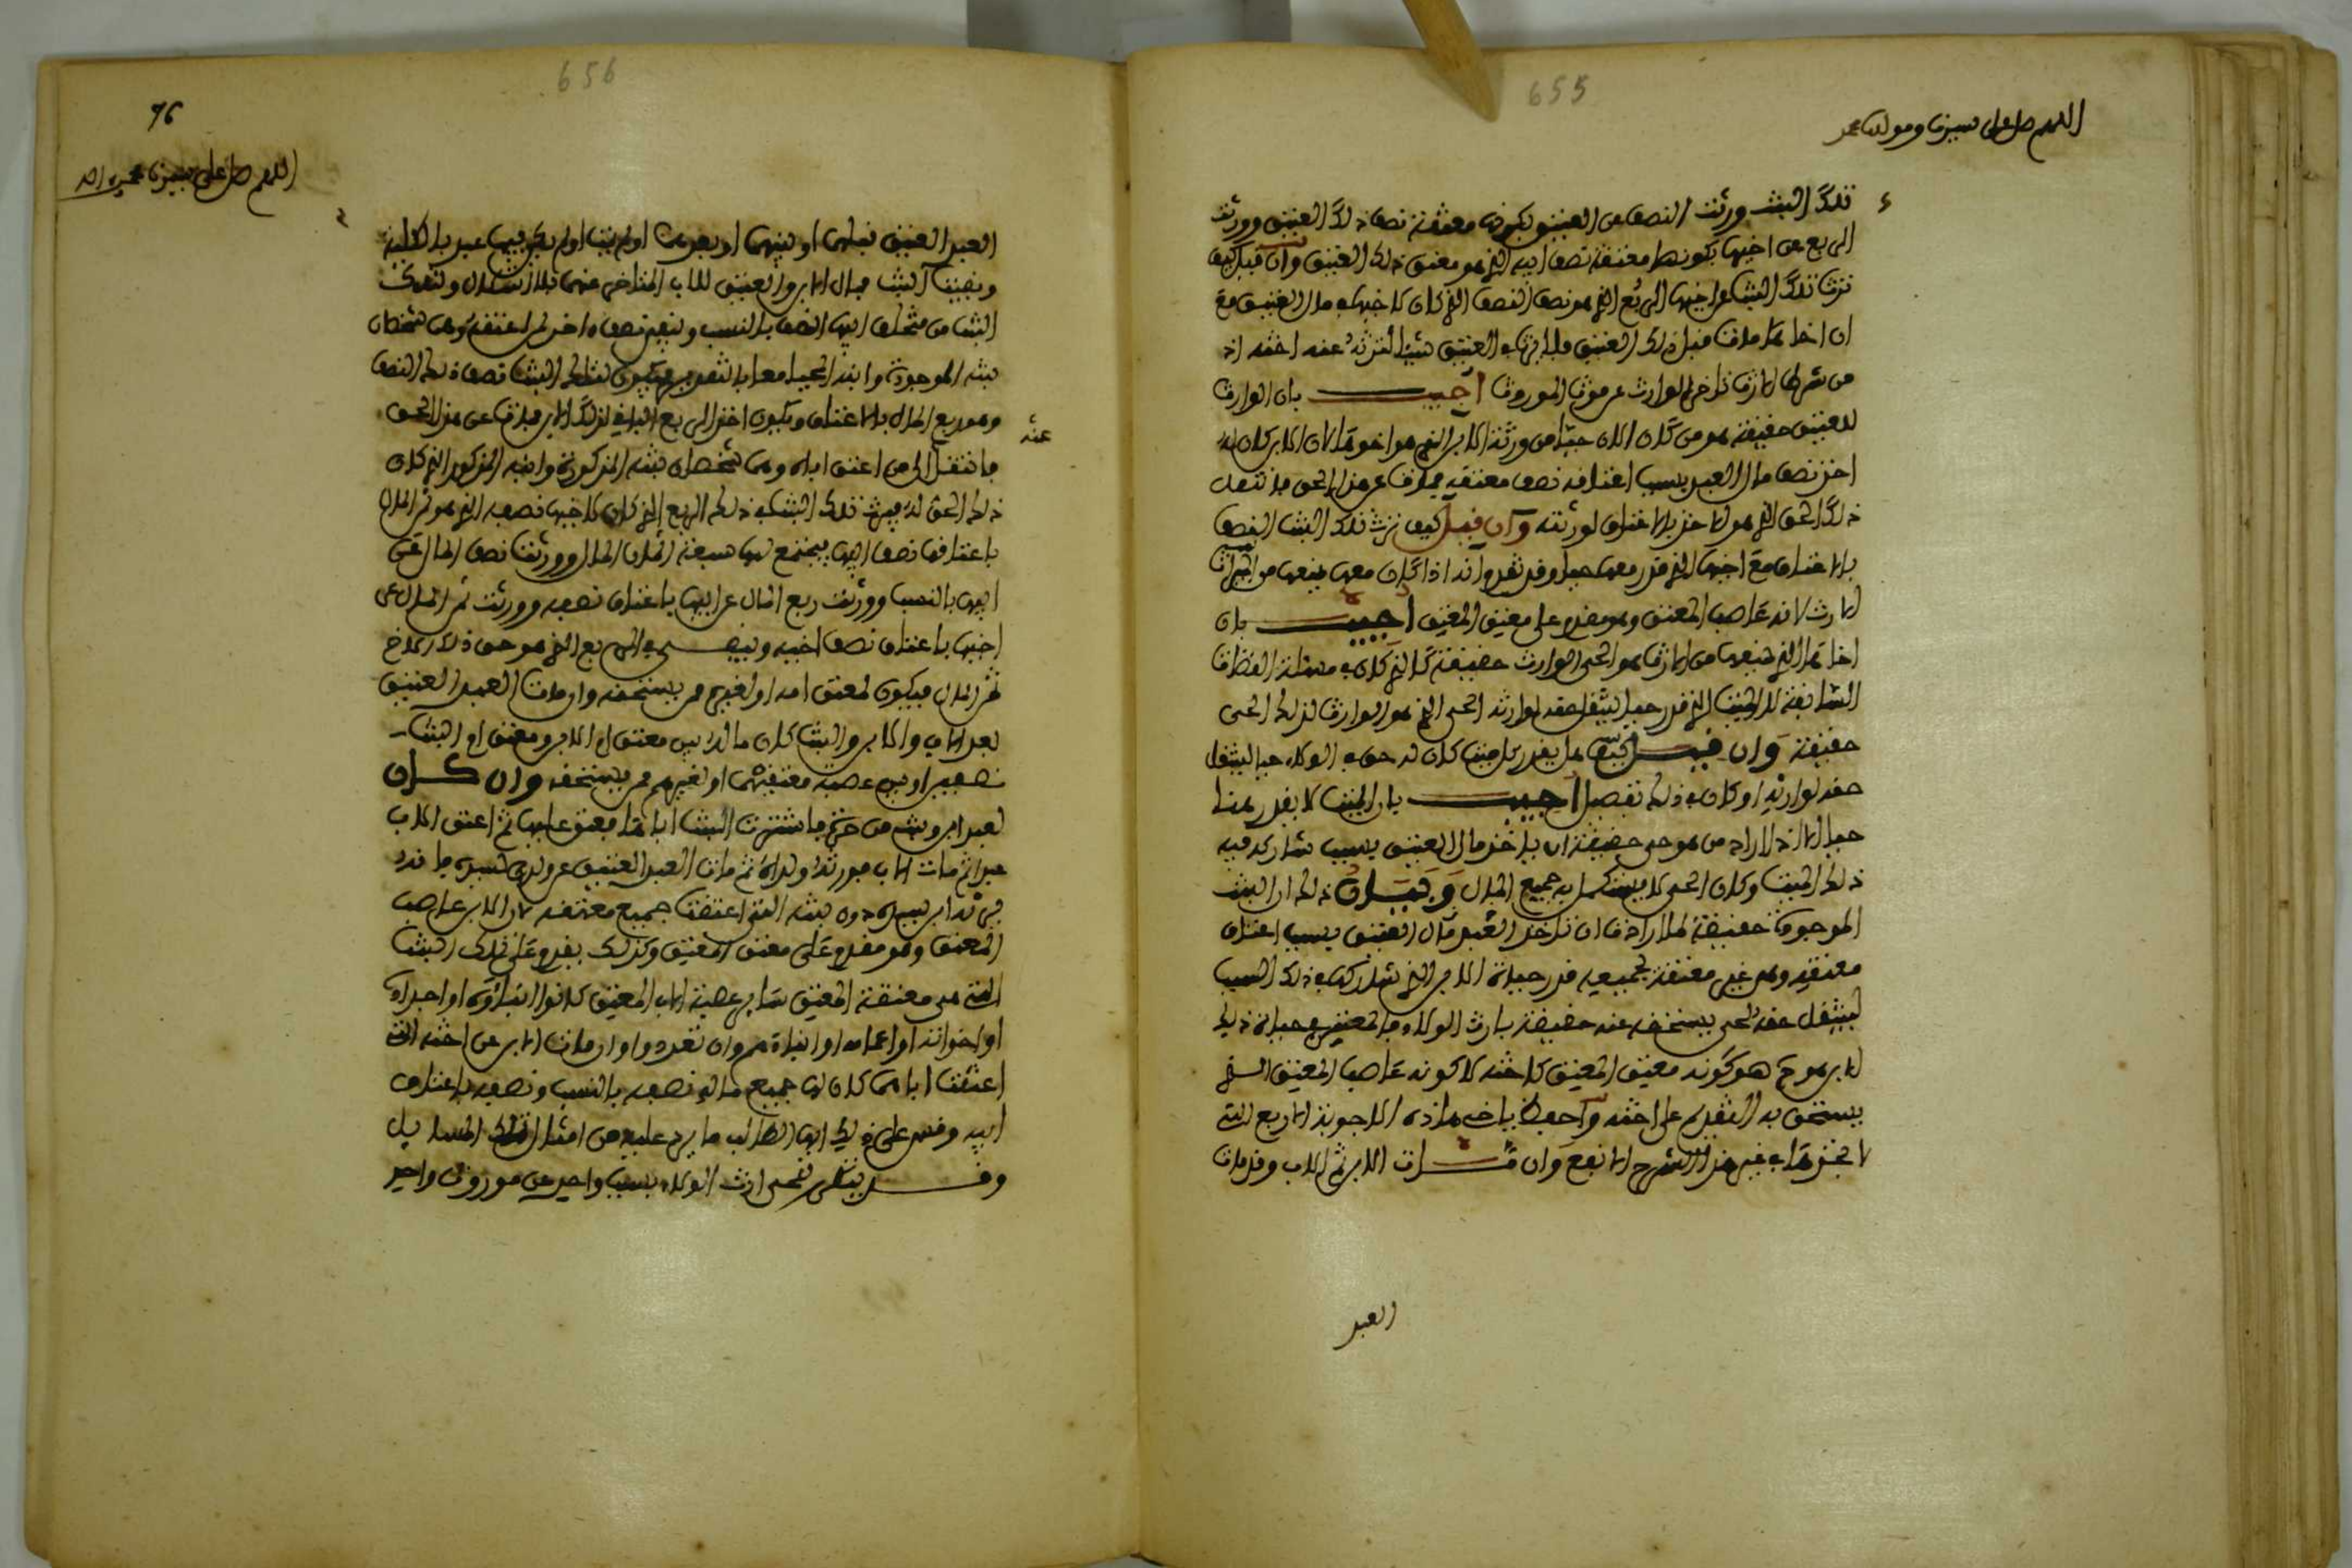 655
اللهم صل على سيدنا ومولانا محمد
تلك البنت ورثت النصف من العتيق بكونها معتقة نصف ذلك العتيق وورثت
الربع عن اخيها بكونها معتقة نصف ابيه الذي هو معتق ذلك العتيق وان قيل كيف
ترث تلك البنت عن اخيها الربع الذي هو نصف النصف الذي كان لاخيها في مال العتيق مع
ان اخاها مات قبل ذلك العتيق فلا يرث في العتيق شيئا لترثه عنه اخته اذ
من شرط الارث تاخر الوارث عن موت الموروث اجيب بان الوارث
للعتيق حقيقة هو من كان الان حيا من ورثة الابن الذي هو اخوها لان الابن كان له
اخذ نصف مال العبد بسبب اعتاقه نصف معتقه فمات عن هذا الحق فانتقل
ذلك الحق الذي هو الاخذ بالاعتاق لورثته وان قيل كيف ترث تلك البنت النصف
بالاعتاق مع اخيها الذي قدر معها حيا وقد تقدم انه اذا كان معها منعها من
الارث لانه عاصب المعتق وهو مقدم على معتق المعتق اجيب بان
اخاها الذي منعها من الارث هو الحي الوارث حقيقة كالذي كان في مسئلة القضاة
السابقة لا الميت الذي قدر حيا لينتقل حقه لوارثه الحي الذي هو الوارث لذلك الحي
حقيقة وان قيل هل يقدر كل ميت كان له حق في الولاء حيا لينتقل
حقه لوارثه او كان في ذلك تفصيل اجيب بان الميت لا يقدر هنا
حيا الا اذا اراد من هو حي حقيقة ان ياخذ مال العتيق بسبب شاركه فيه
ذلك الميت وكان الحي لا يستكمل به جميع المال وبيان ذلك ان البنت
الموجودة حقيقة لما ارادت ان تاخذ العبد مال العتيق بسبب اعتاق
معتقه وهي غير معتقة لجميعه قدر حياة الابن الذي شاركها في ذلك السبب
لينتقل حقه لحي يستحقه عنه حقيقة بارث الولاء في حياة ذلك
الابن هو كونه معتق المعتق كاخته لا كونه عاصب المعتق الذي
يستحق به التقديم على اخته واحفظ يا اخي هذه الاجوبة الاربع التي
لا تجدها في غير هذا الشرح الانفع وان مات الابن ثم الاب وقد مات
العبد
656
76
اللهم صل على سيدنا محمد واله
العبد العتيق قبلهما او بينهما او بعدهما او لم يمت او لم يكن فيها عبد بالكلية
وبقيت البنت فمال الابن والعتيق للاب المتاخر عنهما بلا اشكال ولتلك
البنت من متخلف ابيها النصف بالنسب وبقي نصفه الاخر لمن اعتقه وهما شخصان
بنته الموجودة وابنه الحي معا بالتقدير فيكون لتلك البنت نصف ذلك النصف
وهو ربع المال بالاعتاق ويكون اخذ الربع الباقي لذلك الابن فمات عن هذا الحق
عنه
فانتقل الى من اعتق اباه وهما شخصان بنته المذكورة وابنه المذكور الذي كان
ذلك الحق له فيرث تلك البنت في ذلك الربع الذي كان لاخيها نصفه الذي هو ثمن المال
باعتاقها نصف ابيها فيجتمع لها سبعة اثمان المال وورثت نصف المال عن
ابيها بالنسب وورثت ربع المال عن ابيها باعتاق نصفه وورثت ثمن المال عن
اخيها باعتاق نصف اخيه وبقي في الربع الذي هو حق ذلك الاخ
ثمن المال فيكون لمعتق امه او لغيرهم ممن يستحقه وان مات العبد العتيق
بعد الاب والابن والبنت كان ماله بين معتق ام الابن ومعتق ام البنت
نصفين او بين عصبة معتقيهما او لغيرهم ممن يستحقه وان كان
لعبد ابن وبنت من حرة فاشترت البنت اباها فعتق عليها ثم اعتق الاب
عبدا ثم مات الاب فورثه ولداه ثم مات العبد العتيق عن ولدي سيده فانه
يرثه ابن سيده دون بنته التي اعتقت جميع معتقه لان الابن عاصب
المعتق وهو مقدم على معتق المعتق وكذلك يقدم على تلك البنت
التي هي معتقة المعتق سائر عصبة الاب المعتق كانوا ابناؤه او اجداده
او اخوانه او اعمامه او ابناءهم وان بعدوا وان مات الابن عن اخته التي
اعتقت اباها كان لها جميع ماله نصفه بالنسب ونصفه باعتاق
ابيه وقس على ذلك ايها الطالب ما يرد عليك من امثال تلك المسايل
وقد ينظر شخص ارث الولاء بسبب واحد من موروث واحد